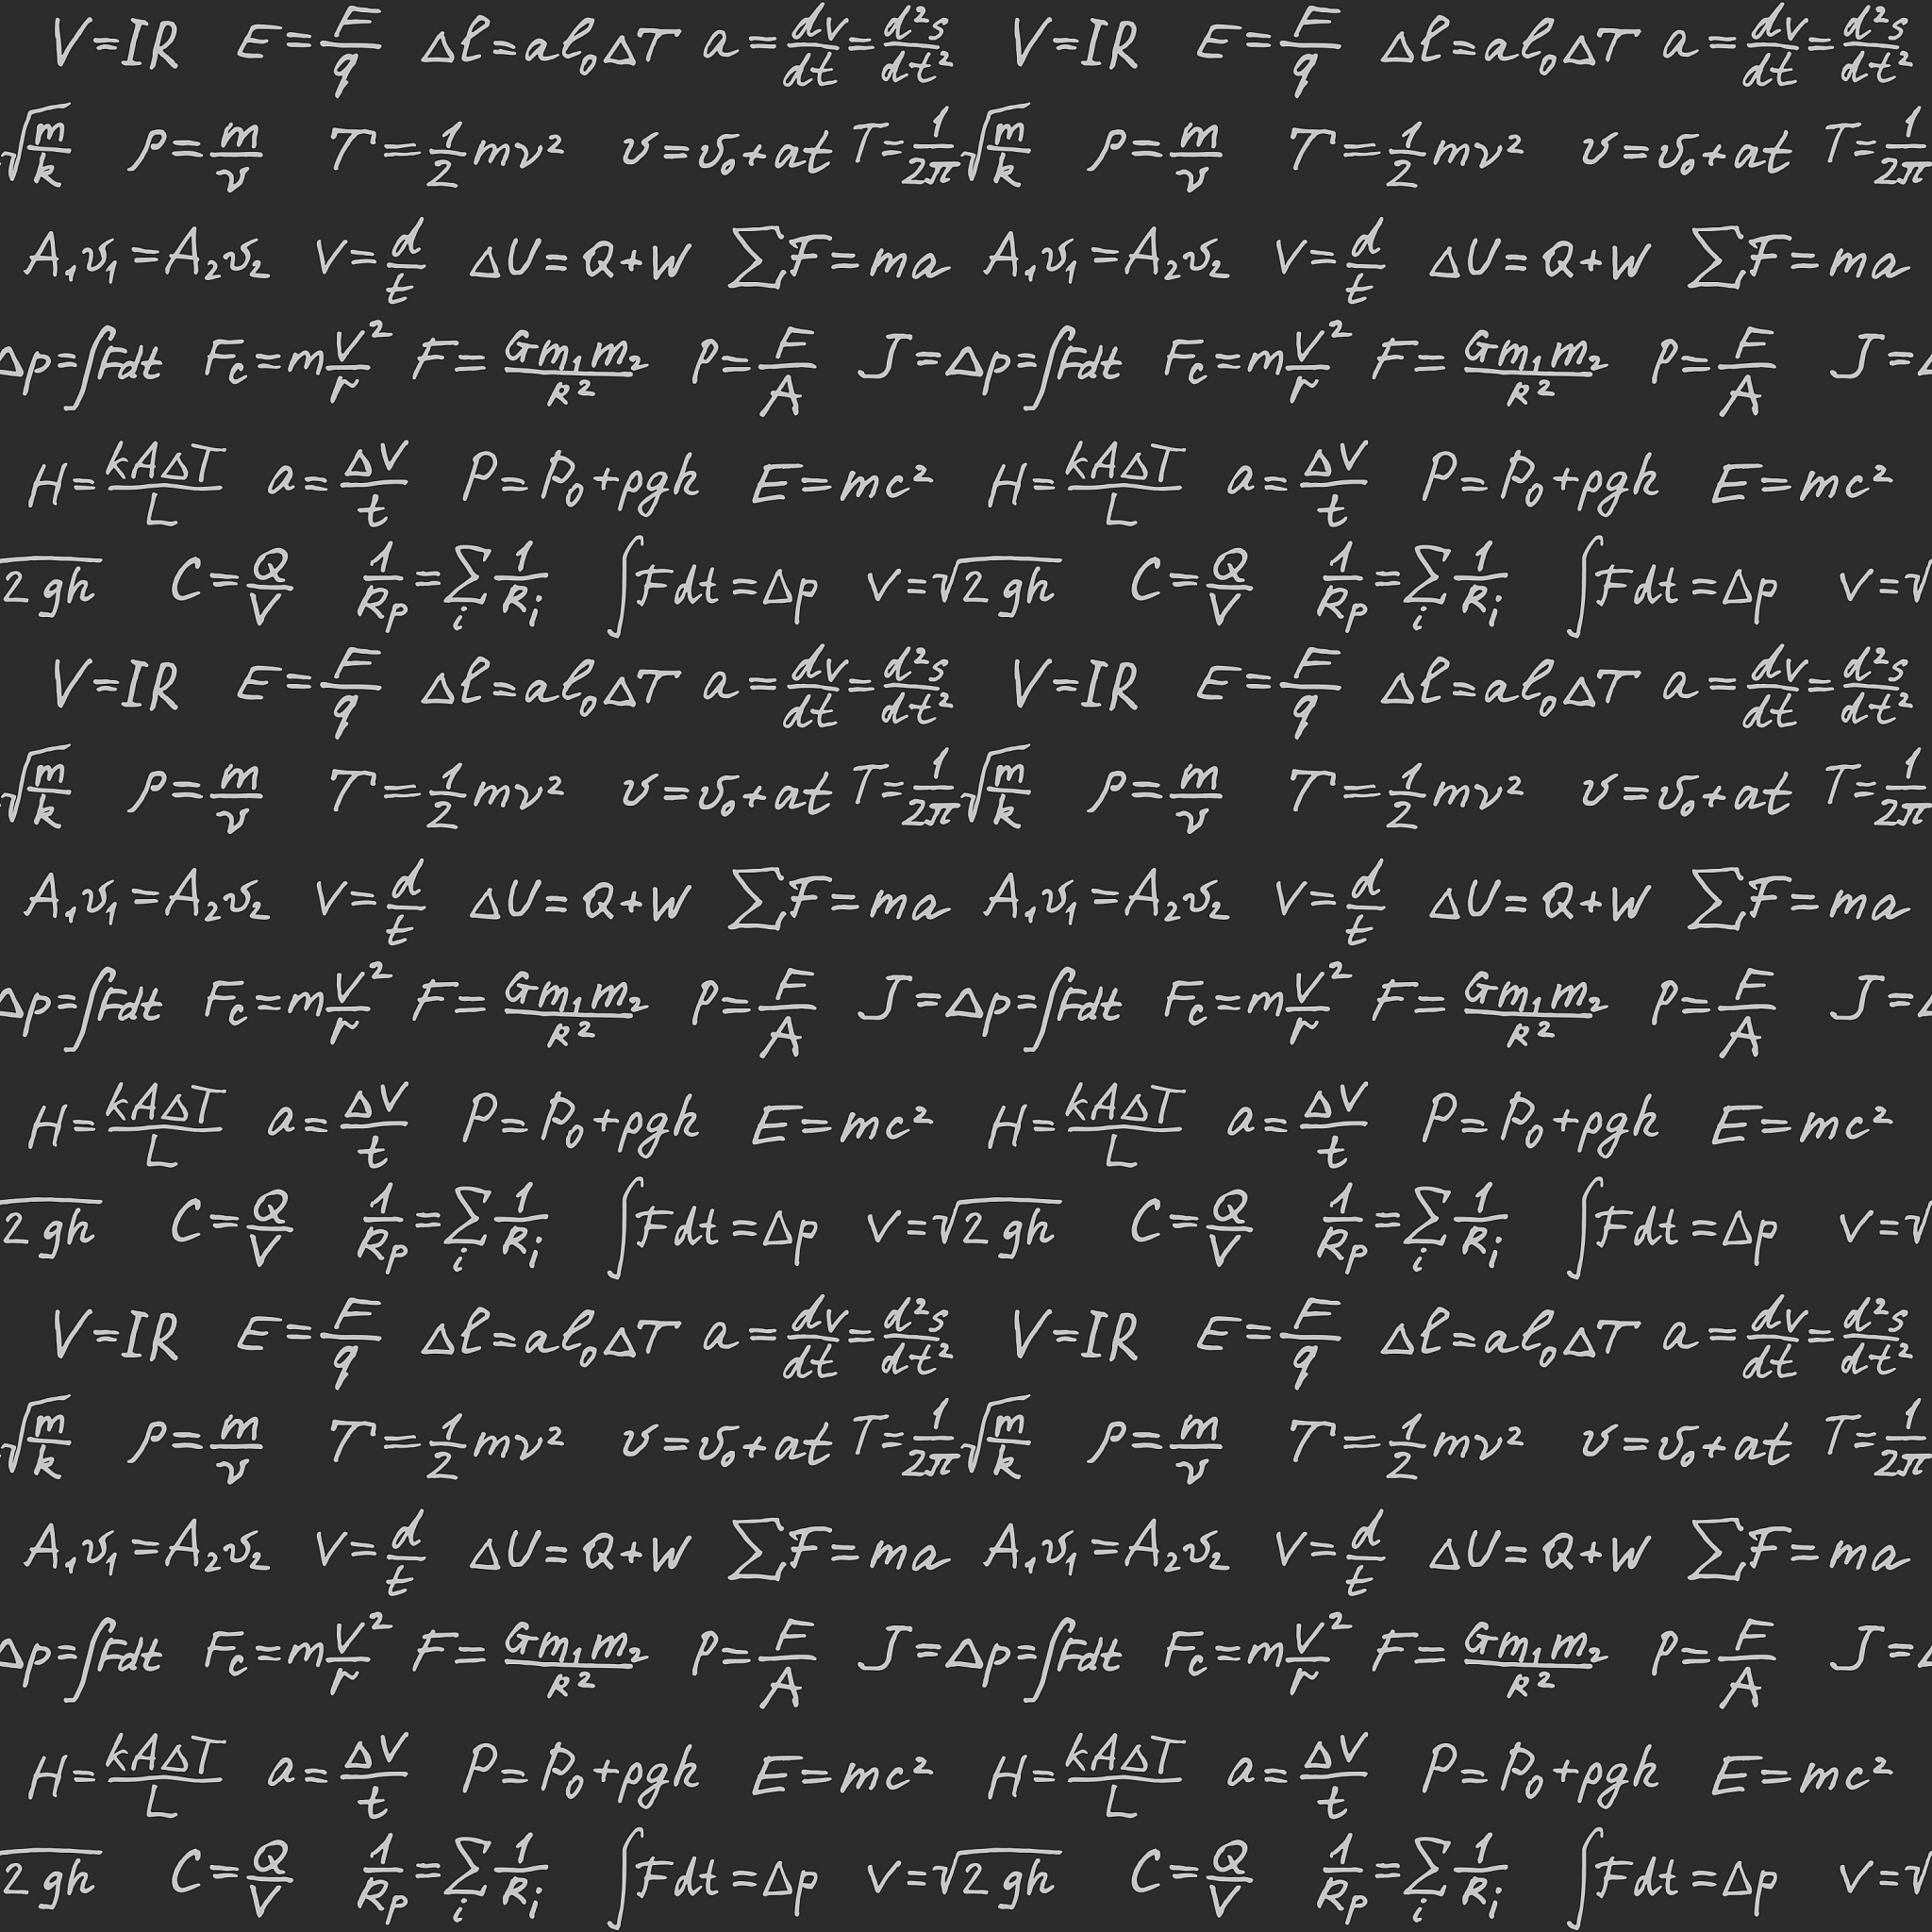 V=IR E=F/q Δℓ=aℓ₀ΔT a=dv/dt=d²s/dt² V=IR E=F/q Δℓ=aℓ₀ΔT a=dv/dt=d²s/dt²
√(m/k) ρ=m/v T=1/2mv² v=v₀+at T=1/2π√(m/k) ρ=m/v T=1/2mv² v=v₀+at T=1/2π
A₁v₁=A₂v₂ V=d/t ΔU=Q+W ∑F=ma A₁v₁=A₂v₂ V=d/t ΔU=Q+W ∑F=ma
Δp=∫Fdt F_c=mV²/r F=Gm₁m₂/R² P=F/A J=Δp=∫Fdt F_c=mV²/r F=Gm₁m₂/R² P=F/A J=Δ
H=kAΔT/L a=ΔV/t P=P₀+ρgh E=mc² H=kAΔT/L a=ΔV/t P=P₀+ρgh E=mc²
2gh C=Q/V 1/R_p=∑_i 1/R_i ∫Fdt=Δp V=√(2gh) C=Q/V 1/R_p=∑_i 1/R_i ∫Fdt=Δp V=√
V=IR E=F/q Δℓ=aℓ₀ΔT a=dv/dt=d²s/dt² V=IR E=F/q Δℓ=aℓ₀ΔT a=dv/dt=d²s/dt²
√(m/k) ρ=m/v T=1/2mv² v=v₀+at T=1/2π√(m/k) ρ=m/v T=1/2mv² v=v₀+at T=1/2π
A₁v₁=A₂v₂ V=d/t ΔU=Q+W ∑F=ma A₁v₁=A₂v₂ V=d/t ΔU=Q+W ∑F=ma
Δp=∫Fdt F_c=mV²/r F=Gm₁m₂/R² P=F/A J=Δp=∫Fdt F_c=mV²/r F=Gm₁m₂/R² P=F/A J=Δ
H=kAΔT/L a=ΔV/t P=P₀+ρgh E=mc² H=kAΔT/L a=ΔV/t P=P₀+ρgh E=mc²
2gh C=Q/V 1/R_p=∑_i 1/R_i ∫Fdt=Δp V=√(2gh) C=Q/V 1/R_p=∑_i 1/R_i ∫Fdt=Δp V=√
V=IR E=F/q Δℓ=aℓ₀ΔT a=dv/dt=d²s/dt² V=IR E=F/q Δℓ=aℓ₀ΔT a=dv/dt=d²s/dt²
√(m/k) ρ=m/v T=1/2mv² v=v₀+at T=1/2π√(m/k) ρ=m/v T=1/2mv² v=v₀+at T=1/2π
A₁v₁=A₂v₂ V=d/t ΔU=Q+W ∑F=ma A₁v₁=A₂v₂ V=d/t ΔU=Q+W ∑F=ma
Δp=∫Fdt F_c=mV²/r F=Gm₁m₂/R² P=F/A J=Δp=∫Fdt F_c=mV²/r F=Gm₁m₂/R² P=F/A J=Δ
H=kAΔT/L a=ΔV/t P=P₀+ρgh E=mc² H=kAΔT/L a=ΔV/t P=P₀+ρgh E=mc²
2gh C=Q/V 1/R_p=∑_i 1/R_i ∫Fdt=Δp V=√(2gh) C=Q/V 1/R_p=∑_i 1/R_i ∫Fdt=Δp V=√